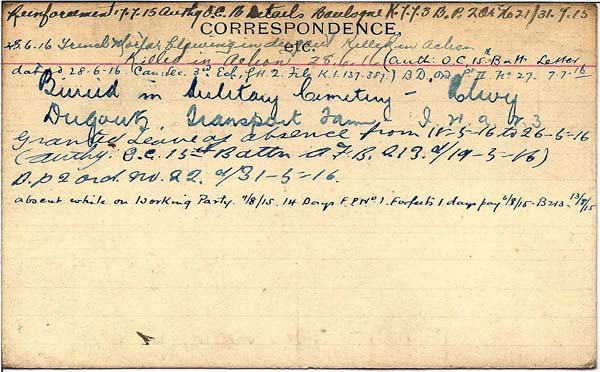 Reinforcement 17.7.15 Authy O.C. B Details Boulogne K.7.73 B.P. 2 Or. No 21/31.7.15
CORRESPONDENCE
etc.
28.6.16 Trench Mortar blowing in dugout Killed in Action
Killed in Action 28.6.16 (Auth: O.C. 15th Batt. Letter
dated 28-6-16. (Can: Sec. 3rd Ech. G.H.Q. File K.1.137-387.) B.D. Pt II No 27. 7-7-16
Buried in Military Cemetery -
Dugouts Transport Farm - I. 3
Granted Leave of absence from 18-5-16 to 26-5-16
(Authy. O.C. 15th Battn A.F.B. 213. d/19-5-16)
D.P 2 ord. no. 22. d/31-5-16.
absent while on Working Party. 4/8/15. 14 Days F.P.No 1. Forfeits 1 days pay 6/8/15. B213. 13/8/15